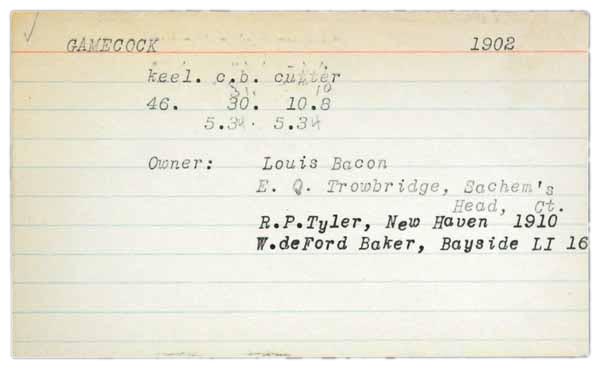 GAMECOCK 1902
keel. c.b. cutter
46. 30. 10.8
5.34. 5.34
Owner: Louis Bacon
E. Q. Trowbridge, Sachem's
Head, Ct.
R.P.Tyler, New Haven 1910
W.deFord Baker, Bayside LI 16